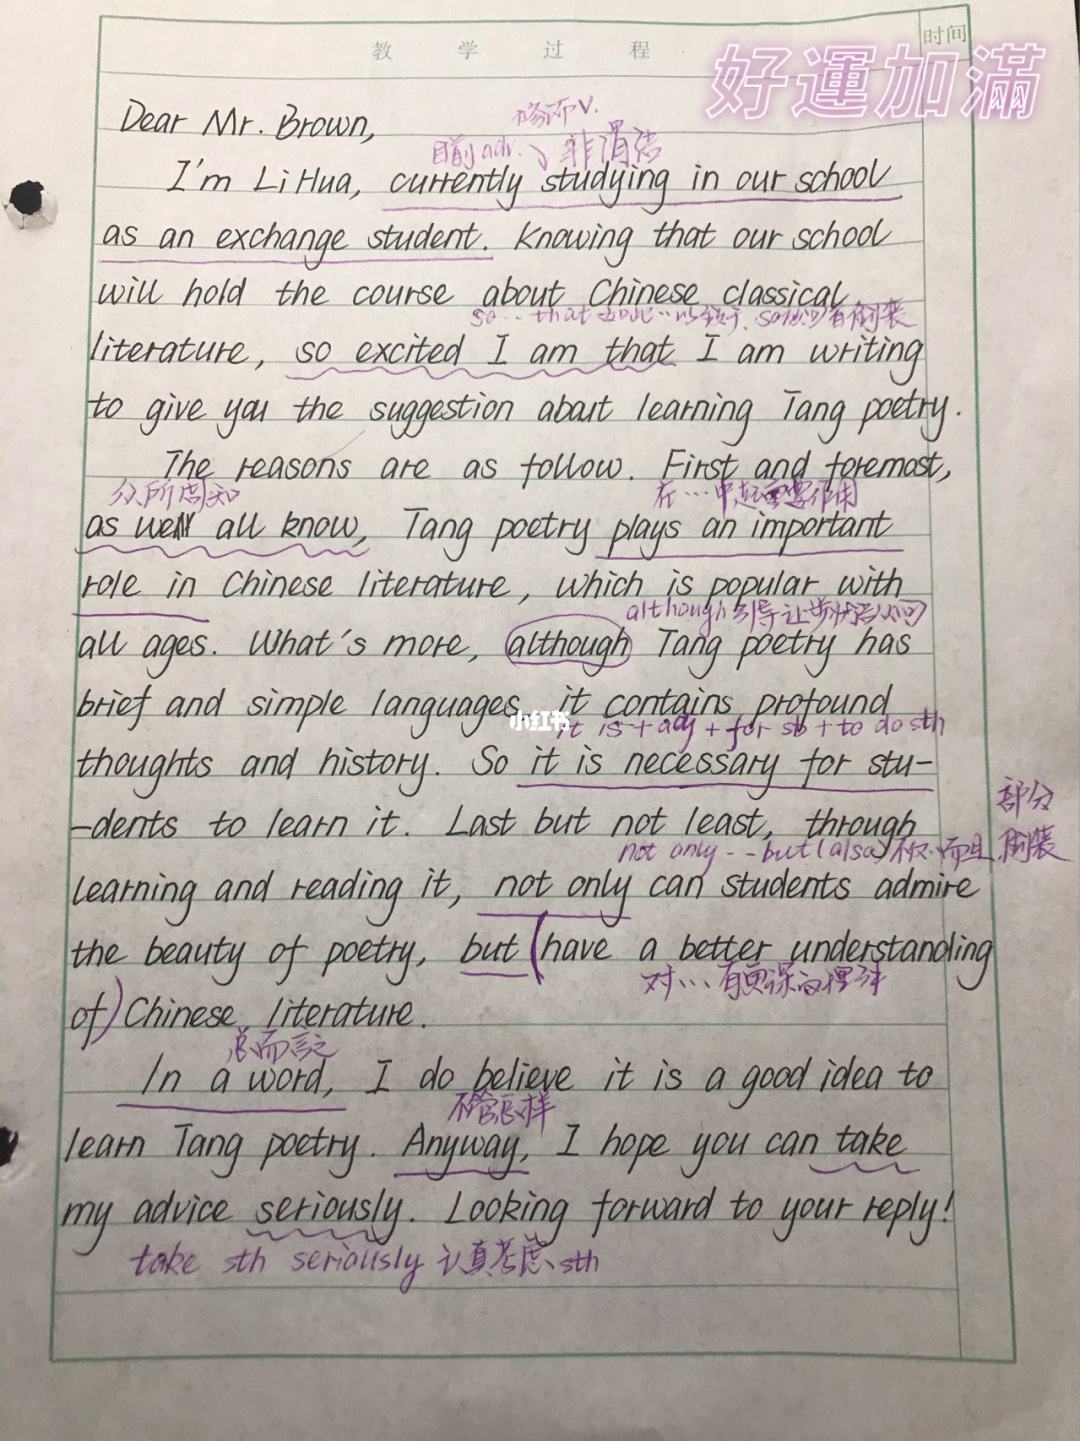 教 学 过 程
时间
好運加滿
Dear Mr. Brown,
修饰V.
目前adv. 非谓语
I'm Li Hua, currently studying in our school
as an exchange student. Knowing that our school
will hold the course about Chinese classical
so...that 如此...以致于,
literature, so excited I am that I am writing
to give you the suggestion about learning Tang poetry.
The reasons are as follow. First and foremost,
众所周知 在...中起重要作用
as we all know, Tang poetry plays an important
role in Chinese literature, which is popular with
although引导让步状语从句
all ages. What's more, although Tang poetry has
brief and simple languages, it contains profound
小红书
it is + adj + for sb + to do sth
thoughts and history. So it is necessary for stu-
-dents to learn it. Last but not least, through
部分
倒装
not only --but(also)不仅…而且
learning and reading it, not only can students admire
the beauty of poetry, but (have a better understanding
对...有更深的理解
of) Chinese literature.
总而言之
In a word, I do believe it is a good idea to
不管怎样
learn Tang poetry. Anyway, I hope you can take
my advice seriously. Looking forward to your reply!
take sth seriously 认真考虑sth